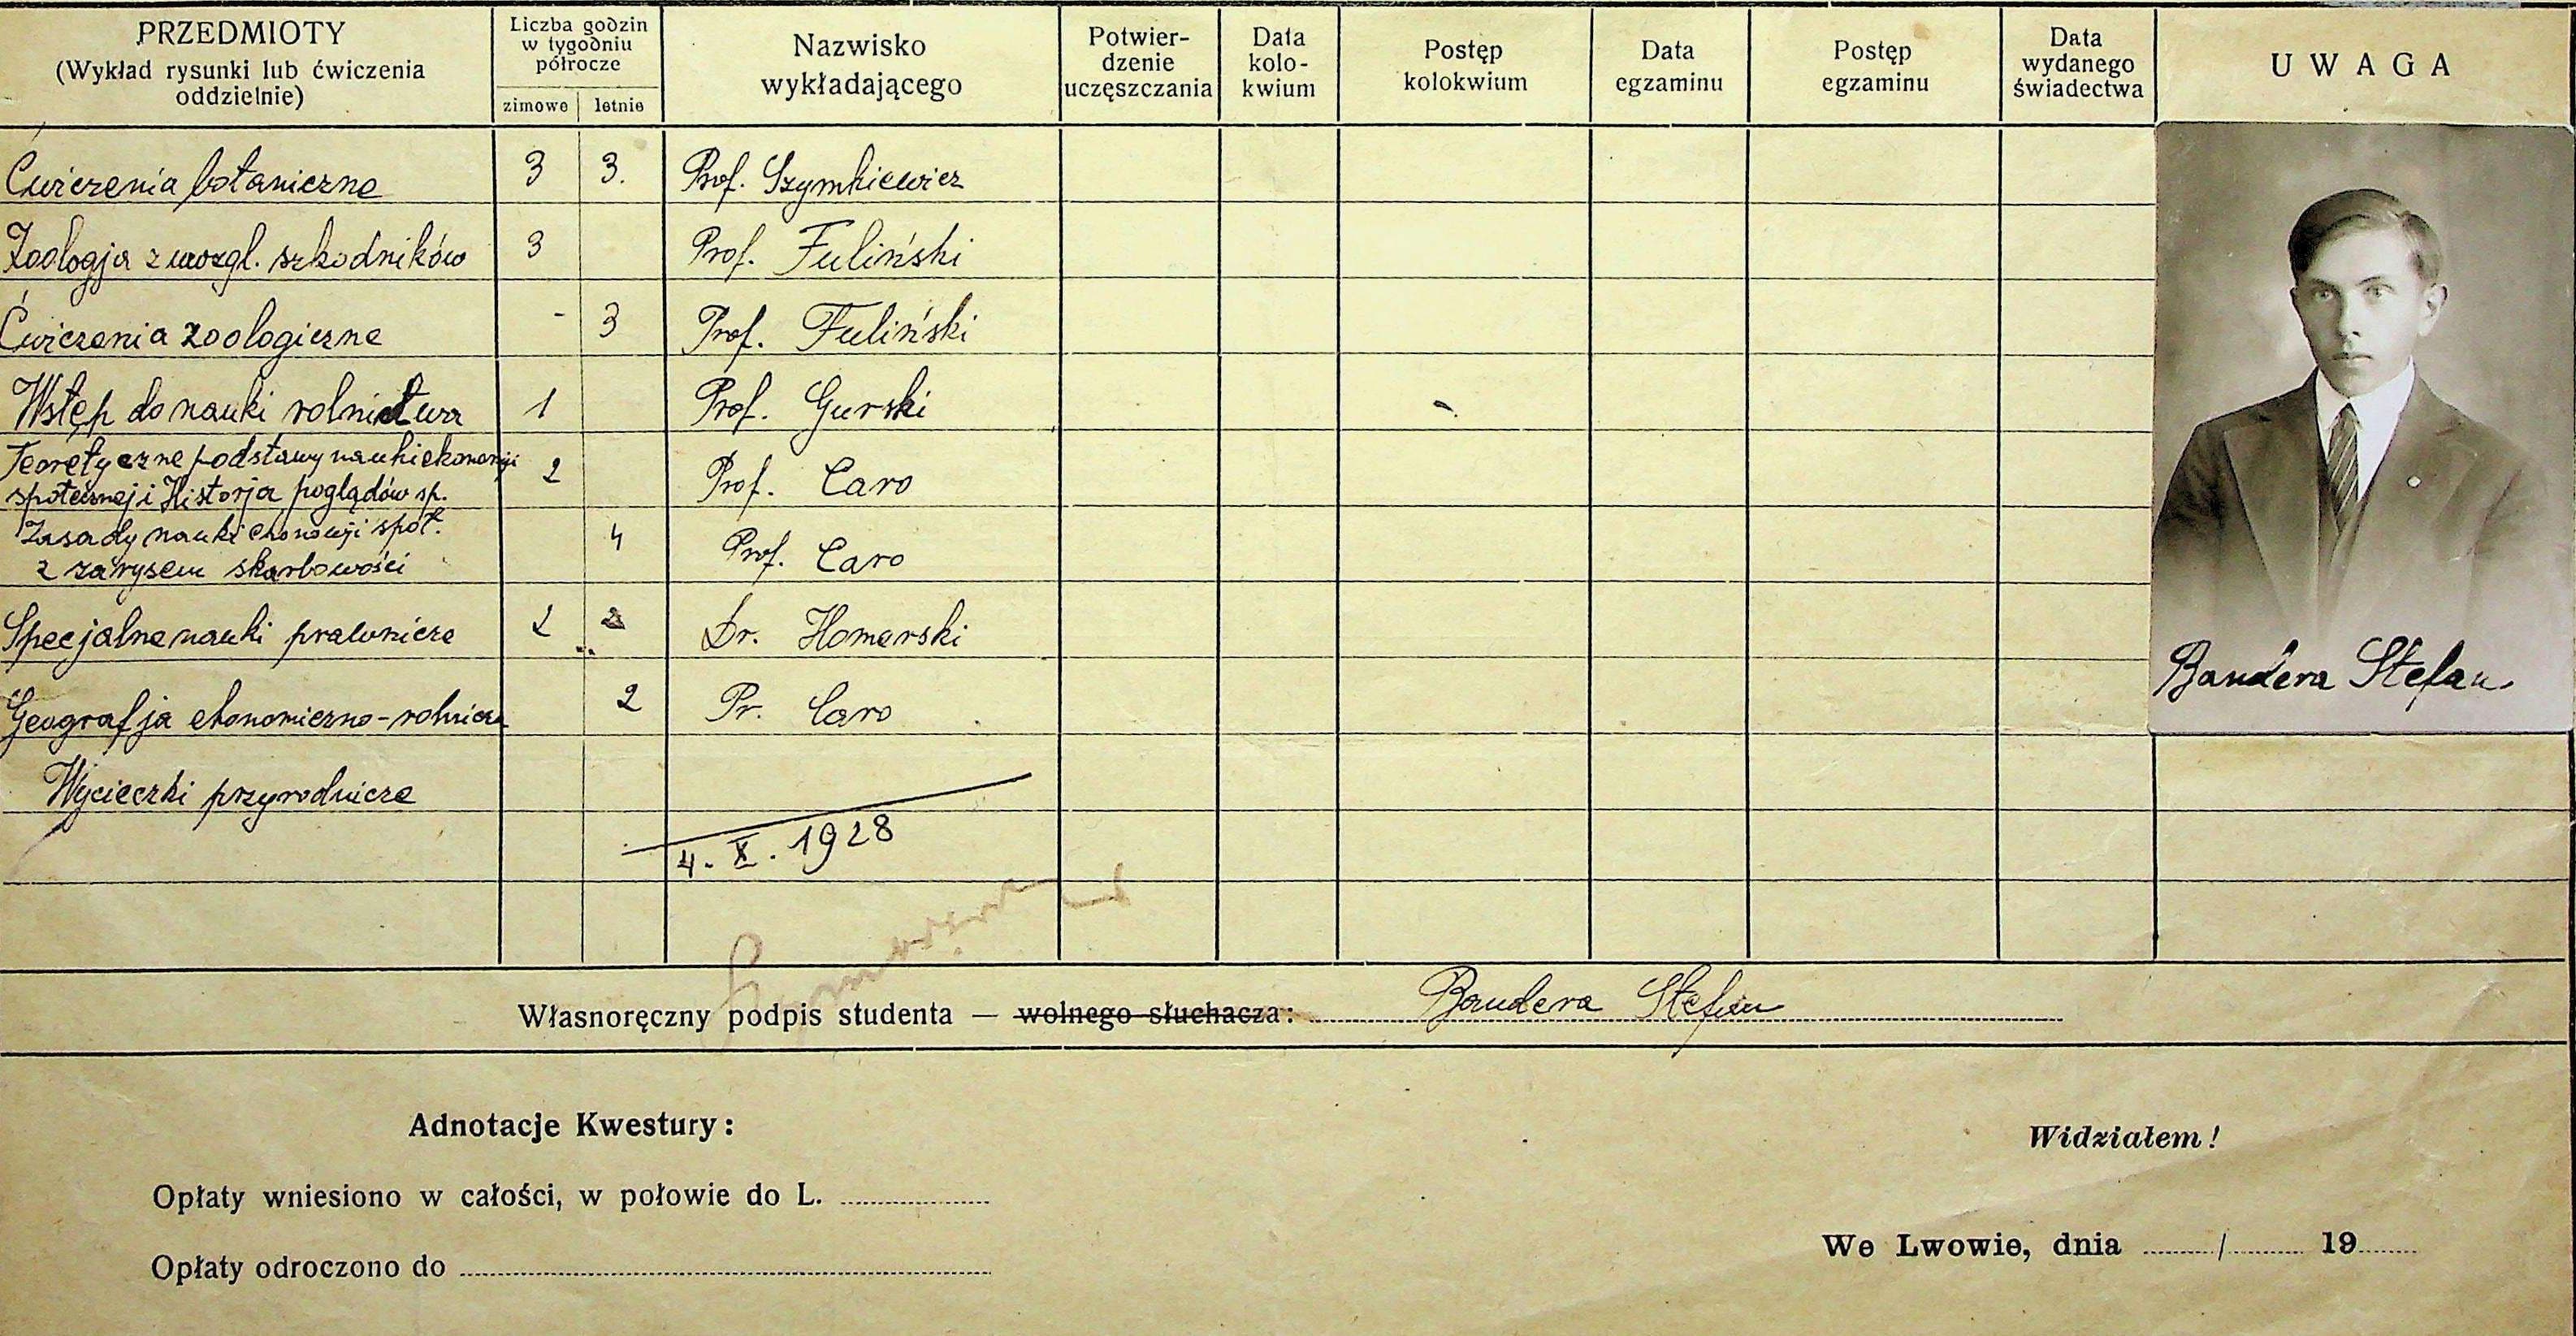 PRZEDMIOTY
(Wykład rysunki lub ćwiczenia
oddzielnie)
Liczba godzin
w tygodniu
półrocze
zimowe letnie
Nazwisko
wykładającego
Potwier-
dzenie
uczęszczania
Data
kolo-
kwium
Postęp
kolokwium
Data
egzaminu
Postęp
egzaminu
Data
wydanego
świadectwa
UWAGA
Ćwiczenia botaniczne 3 3. Prof. Szymkiewicz
Zoologja z uwzgl. szkodników 3 Prof. Fuliński
Ćwiczenia zoologiczne - 3 Prof. Fuliński
Wstęp do nauki rolnictwa 1 Prof. Gurski
Teoretyczne podstawy nauki ekonomji
społecznej i Historja poglądów sp. 2 Prof. Caro
Zasady nauki ekonomji społ.
z zarysem skarbowości 4 Prof. Caro
Specjalne nauki prawnicze 2 2 Dr. Homerski
Geografja ekonomiczno-rolnicza 2 Pr. Caro
Wycieczki przyrodnicze
4. X. 1928
Bandera Stefan
Własnoręczny podpis studenta — wolnego słuchacza: Bandera Stefan
Adnotacje Kwestury:
Widziałem!
Opłaty wniesiono w całości, w połowie do L.
We Lwowie, dnia / 19
Opłaty odroczono do